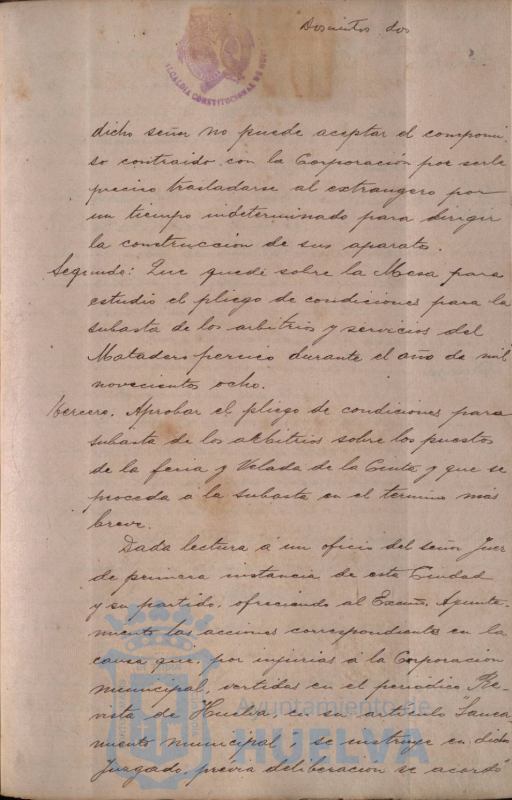 Doscientos dos
ALCALDIA CONSTITUCIONAL DE HUELVA
dicho señor no puede aceptar el compromi-
so contraido con la Corporación por serle
preciso trasladarse al extrangero por
un tiempo indeterminado para dirigir
la construcción de sus aparatos.
Segundo: Que quede sobre la Mesa para
estudio el pliego de condiciones para la
subasta de los arbitrios y servicios del
Matadero durante el año de mil
novecientos ocho.
Tercero. Aprobar el pliego de condiciones para
subasta de los arbitrios sobre los puestos
de la feria y Velada de la Cinta y que se
proceda a la subasta en el termino más
breve.
Dada lectura á un oficio del señor Juez
de primera instancia de esta Ciudad
y su partido, ofreciendo al Excmo. Ayunta-
miento las acciones correspondientes en la
causa que, por injurias á la Corporación
municipal, vertidas en el periodico "Re-
vista de Huelva, en su articulo "Sanea-
miento municipal", se instruye en dicho
Juzgado, previa deliberación se acordó
Ayuntamiento de
HUELVA